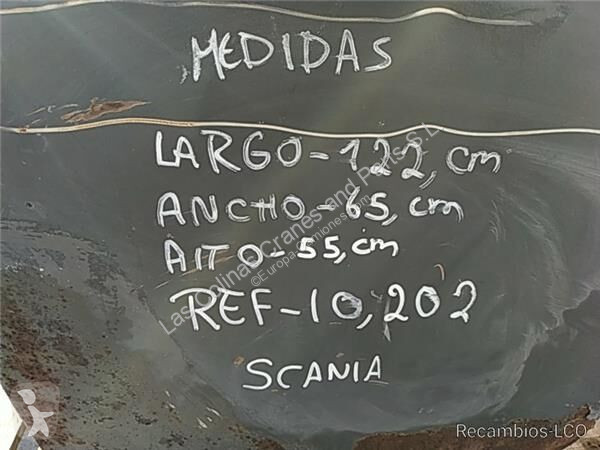 MEDIDAS
LARGO-122, cm
ANCHO-65, cm
AITO-55, cm
REF-10,202
SCANIA
Las Onlinas Cranes and Parts S.L.
©Europa-camiones.com
Recambios-LCO